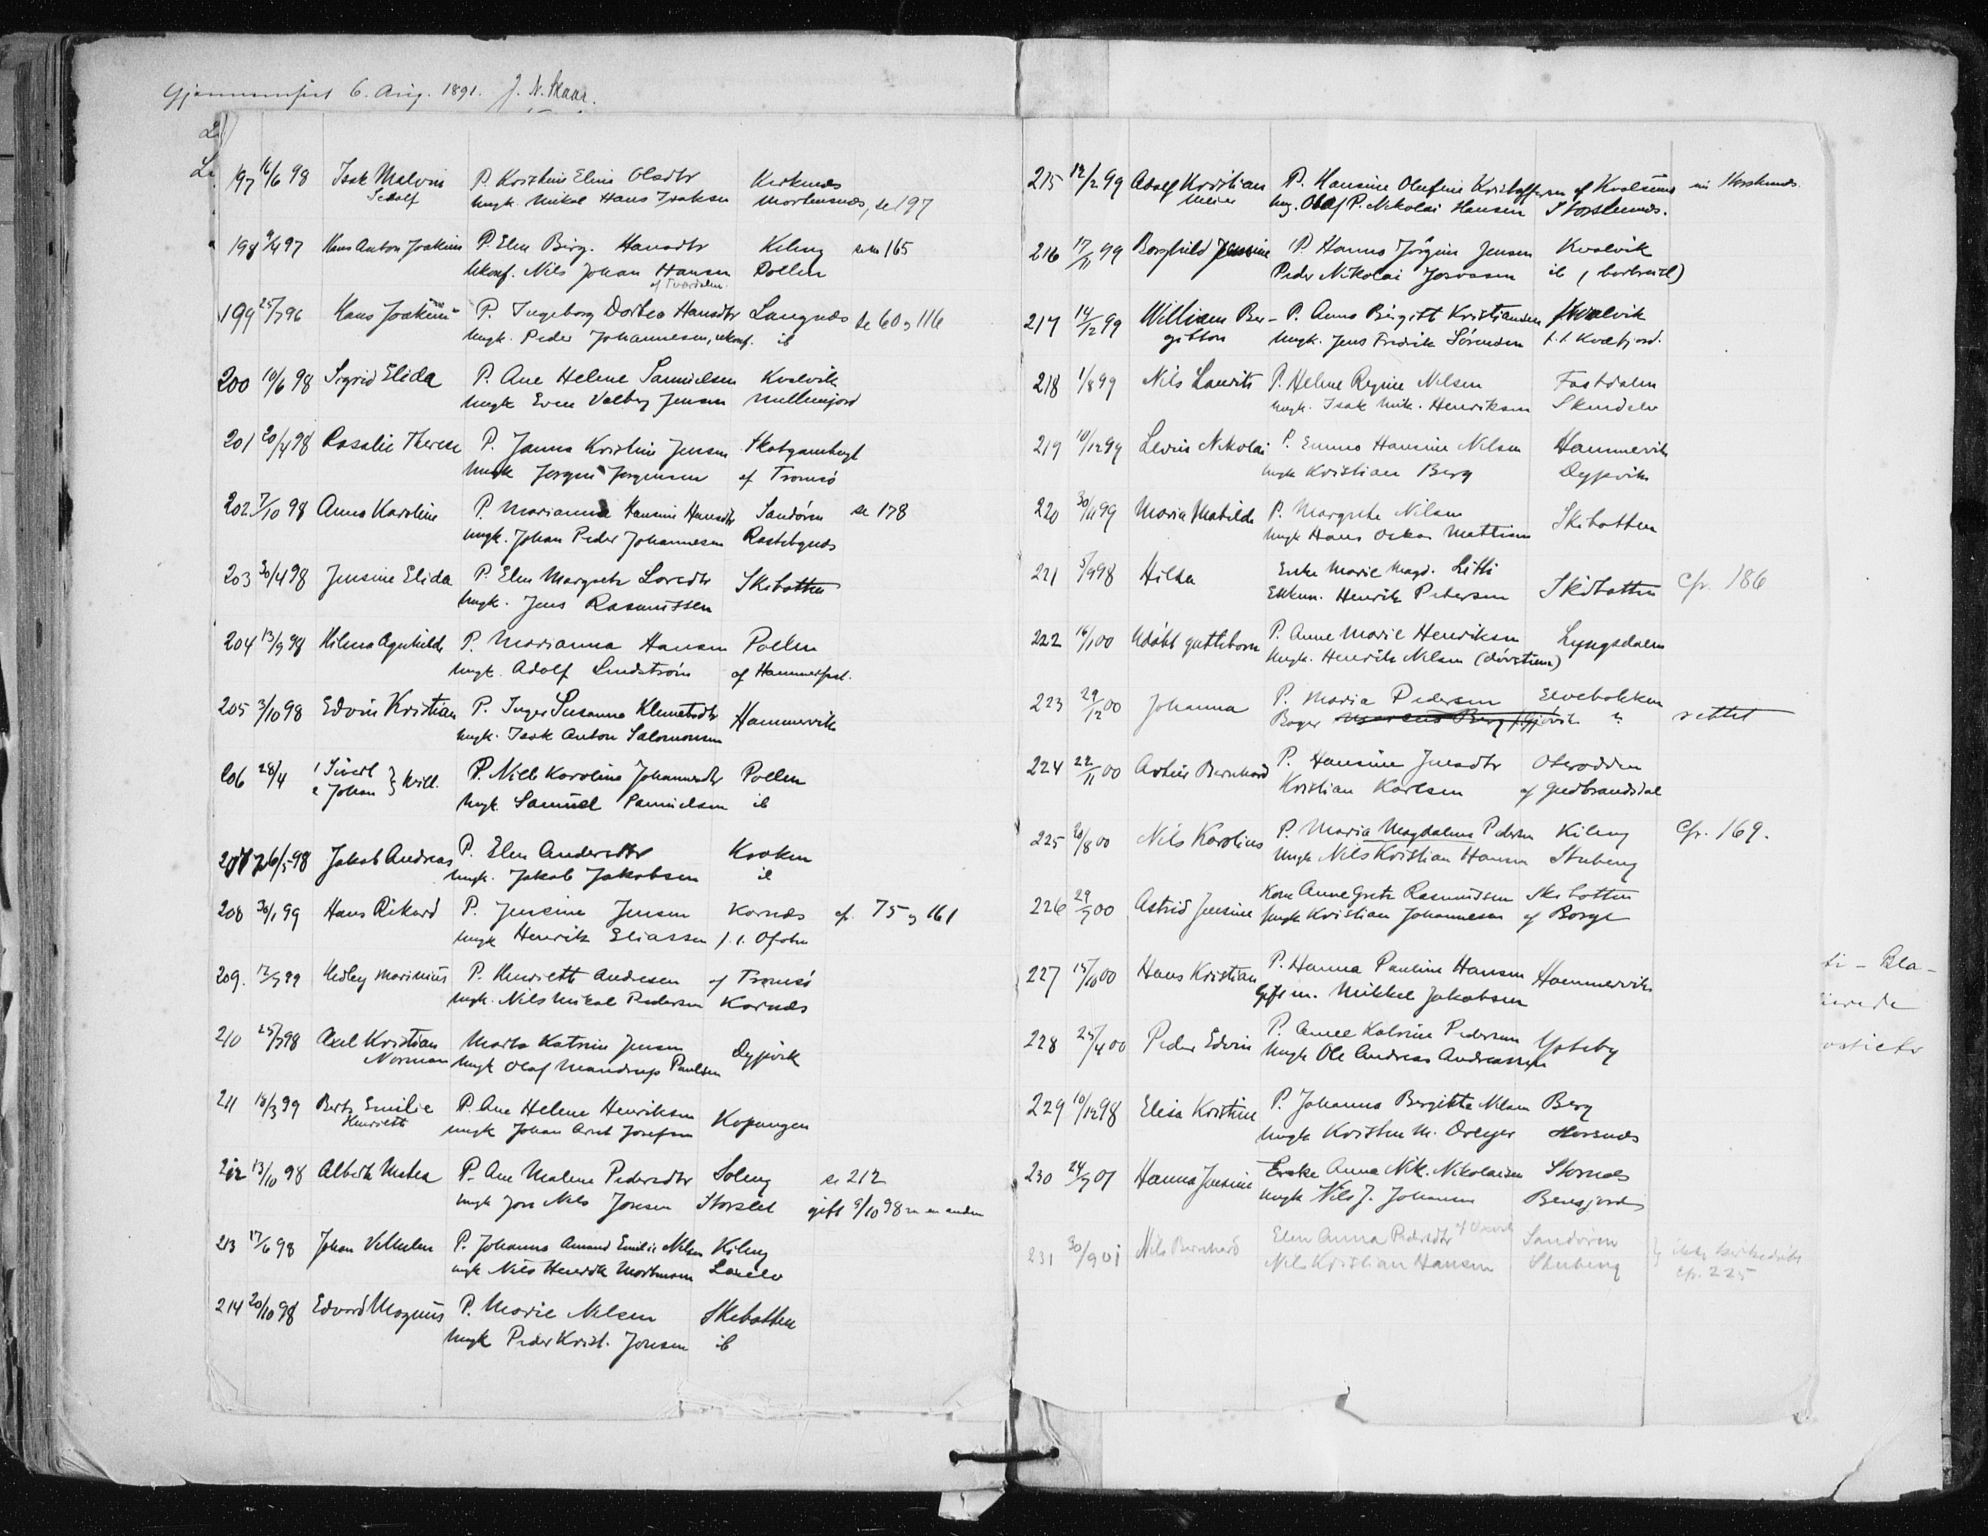 6. Aug. 1891. J. N. Skaar.
197 16/6 98 Isak Malvin P. Kristine Eline Olsdtr Kirknes
Iedolf Ungk. Mikal Hans Isaksen Mortensnes, se 197
198 97 Hans Anton Joakim P. Elen Birg. Hansdtr Kileng 165
Ukonf. Nils Johan Hansen Pollen
199 25/7 96 Hans Joakim P. Ingeborg Dortea Hansdtr Langnes se 60 og 116
Ungk. Peder Johannesen, ukonf. ib
200 10/6 98 Sigrid Elida P. Ane Helene Samuelsen Kvalvik
Ungk Even Valberg Jensen
201 20/4 98 Rosalie Therese P. Janna Kristine Jensen
Ungk Jørgen Jørgensen af Tromsø
202 7/10 98 Anna Karoline P. Marianna Hansine Hansdtr Sandøren se 178
Ungk. Johan Peder Johannesen Rastebynes
203 30/4 98 Jensine Elida P. Elen Margrete Larsdtr Skibotten
Ungk. Jens Rasmussen
204 13/9 98 Hilma Agnhilde P. Marianna Hansen Pollen
Ungk. Adolf Lindstrøm af Hammerfest.
205 3/10 98 Edvin Kristian P. Inger Susanna Klemetsdtr Hammervik
Ungk. Isak Anton Salomonsen
206 28/4 1 Sivert } tvill. P. Nille Karoline Johannesdtr Pollen
2 Johan Ungk. Samuel Samuelsen ib
207 26/5 98 Jakob Andreas P. Elen Andersdtr Kroken
Ungk. Jakob Jakobsen il
208 30/1 99 Hans Rikard P. Jensine Jensen Kornes cf. 75 og 161
Ungk Henrik Eliassen f. i. Ofoten
209. 99 Hedley Marinius P. Henriette Andresen af Tromsø
Ungk. Nils Mikal Pedersen Kornes
210 25/7 98 Axel Kristian Marta Katrine Jensen Dypvik
Norman Ungk Olaf Mandrup Paulsen
211 18/3 99 Berts Emilie P. Ane Helene Henriksen Kopangen
Henriette Ungk Johan Arnt Josefsen
212 13/10 98 Alberte Matea P. Ane Malene Pedersdtr Soleng se 212
Ungk Jon Nils Jonsen Storslet gift 9/10 98 m en anden
213 17/6 98 Johan Vilhelm P. Johanna Amanda Emilie Nilsen Kileng
ungk Nils Henrik Mortensen
214 20/10 98 Edvard Magnus P. Marie Nilsen Skibotten
Ungk Peder Krist. Jonsen ib
215 12/2 99 Adolf Kristian P. Hansine Olufine Kristoffersen af Kvalsund
Meier Ung. Olaf P. Nikolai Hansen
216 17/11 99 Borghild Jensine P. Hanna Jørgine Jensen Kvalvik
Peder Nikolai ib
217 14/12 99 William Ber- P. Anna Birgitt Kristiansen Kvalvik
gitton Ungk. Jens Fredrik Sørensen f. i. Kvæfjord.
218 1/8 99 Nils Laurits P. Helene Regine Nilsen Fastdalen
Ungk. Isak Mik. Henriksen
219 10/12 99 Levin Nikolai P. Emma Hansine Nilsen Hammervik
Ungk Kristian Berg Dypvik
220 30/11 99 Maria Matilde P. Margrethe Nilsen Skibotten
Ungk Hans Oskar
221 5/9 98 Hilda Enke Marie Magd. Litti Skibotten cfr. 186
Enkem. Henrik Petersen
222 16/1 00 Udøbt guttebarn P. Anne Marie Henriksen Lyngsdalen
Ungk. Henrik Nilsen (døvstum)
223 29/12 00 Johanna P. Maria Pedersen Elvebakken
Bager rettet
224 22/11 00 Artur Bernhard P. Hansine Jensdtr Oterodden
Kristian Karlsen af Gudbrandsdal
225 20/8 00 Nils Karolius P. Maria Magdalena Pedersen Kileng Cfr. 169.
Ungk Nils Kristian Hansen Stubeng
226 29/7 00 Astrid Jensine Kone Anne Grete Rasmussen Skibotten
Ungk Kristian Johannesen af Borge
227 15/10 00 Hans Kristian P. Hanna Pauline Hansen Hammervik
Gift m. Mikkel Jakobsen
228 25/4 00 Peder Edvin P. Anne Katrine Pedersen
Ungk Ole Andreas Andreassen
229 10/12 98 Elisa Kristine P. Johanna Bergitta Nilsen Berg
Ungk Kristen M. Dreyer Horsnes
230 24/7 01 Hanna Jensine Enke Anna Nik. Nikolaisen Skornes
Ungk Nils J. Johansen Bensjord
231 30/9 01 Nils Bernhard Elen Anna Pedersdtr Sandøren
Nils Kristian Hansen Stubeng cfr. 225